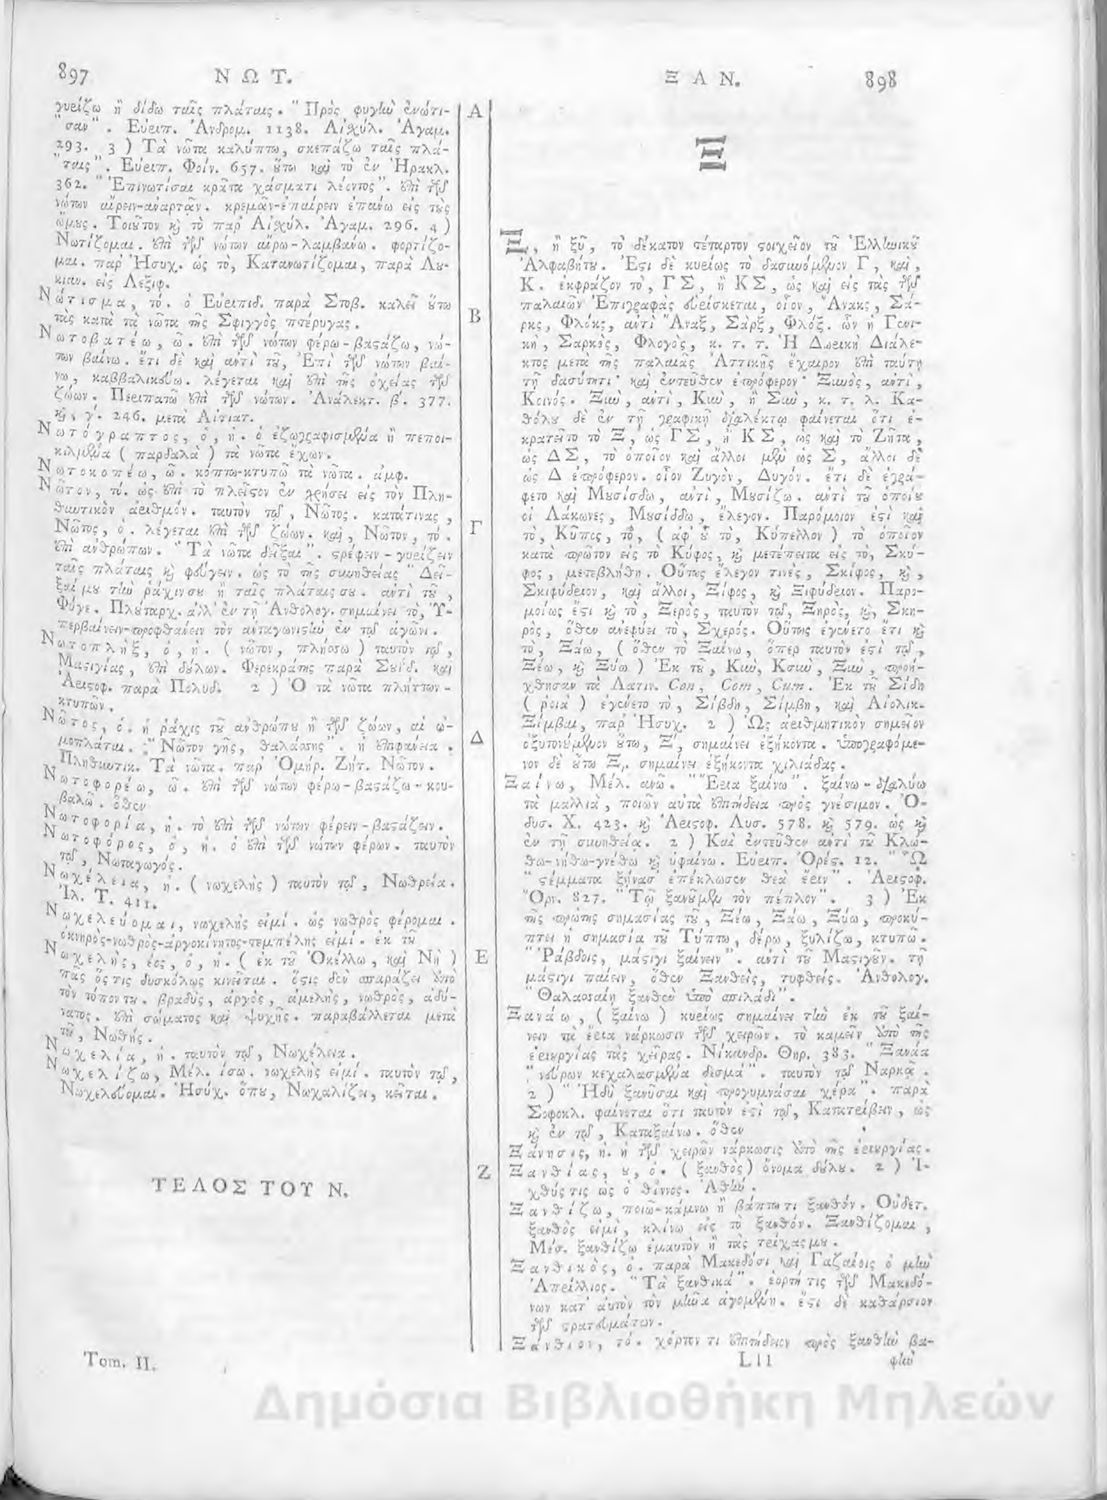 897 ΝΩΤ.
γυρίζω ἢ δίδω ταῖς πλάταις. " Πρὸς φυγὴν ἐνώτι-
" σαν ". Εὐριπ. Ἀνδρομ. 1138. Αἰσχύλ. Ἀγαμ.
293. 3 ) Τὰ νῶτα καλύπτω, σκεπάζω ταῖς πλά-
" ταις ". Εὐριπ. Φοίν. 657. ὅτω καὶ τὸ ἐν Ἡρακλ.
362. " Ἐπινωτίσαι κρᾶτα χάσματι λέοντος ". ἐπὶ τῶν
νώτων αἴρειν-ἀναρτᾶν. κρεμᾶν-ἐπαίρειν ἐπάνω εἰς τοὺς
ὤμους. Τοιοῦτον καὶ τὸ παρ' Αἰσχύλ. Ἀγαμ. 296. 4 )
Νωτίζομαι. ἐπὶ τῶν νώτων αἴρω-λαμβάνω. φορτίζο-
μαι. παρ' Ἡσυχ. ὡς τὸ, Κατανωτίζομαι, παρὰ Λου-
κιαν. εἰς Λεξιφ.
Νώτισμα, τό. ὁ Εὐριπίδ. παρὰ Στοβ. καλεῖ οὕτω
τὰς κατὰ τὰ νῶτα τῆς Σφιγγὸς πτέρυγας.
Νωτοβατέω, ῶ. ἐπὶ τῶν νώτων φέρω-βαστάζω, νώ-
των βαίνω. ἔτι δὲ καὶ ἀντὶ τοῦ, Ἐπὶ τῶν νώτων βαί-
νω, καββαλικεύω. λέγεται καὶ ἐπὶ τῆς ὀχείας τῶν
ζώων. Περιπατῶ ἐπὶ τῶν νώτων. Ἀνάλεκτ. β'. 377.
καὶ, γ'. 246. μετὰ Αἰτιατ.
Νωτόγραπτος, ὁ, ἡ. ὁ ἐζωγραφισμένα ἢ πεποι-
κιλμένα ( παρδαλὰ ) τὰ νῶτα ἔχων.
Νωτοκοπέω, ῶ. κόπτω-κτυπῶ τὰ νῶτα. ἀμφ.
Νῶτον, τό. ὡς ἐπὶ τὸ πλεῖστον ἐν χρήσει εἰς τὸν Πλη-
θυντικὸν ἀριθμόν. ταυτὸν τῷ, Νῶτος. κατά τινας,
Νῶτος, ὁ. λέγεται ἐπὶ τῶν ζώων. καὶ, Νῶτον, τό.
ἐπὶ ἀνθρώπων. " Τὰ νῶτα δεῖξαι ". στρέφειν-γυρίζειν
ταῖς πλάταις καὶ φεύγειν. ὡς τὸ τῆς συνηθείας " Δεῖ-
ξαί μοι τὴν ῥάχιν σου ἢ ταῖς πλάταις σου. ἀντὶ τοῦ,
Φύγε. Πλούταρχ. ἀλλ' ἐν τῇ Ἀνθολογ. σημαίνει τὸ, Ὑ-
περβαίνειν-προφθάνειν τὸν ἀνταγωνιστὴν ἐν τῷ ἀγῶνι.
Νωτοπλὴξ, ὁ, ἡ. ( νῶτον, πλήσσω ) ταυτὸν τῷ,
Μαστιγίας, ἐπὶ δούλων. Φερεκράτης παρὰ Σουΐδ. καὶ
Ἀριστοφ. παρὰ Πολυδ. 2 ) Ὁ τὰ νῶτα πλήττων-
κτυπῶν.
Νῶτος, ὁ. ἡ ῥάχις τοῦ ἀνθρώπου ἢ τῶν ζώων, αἱ ὠ-
μοπλάται. " Νῶτον γῆς, θαλάσσης ". ἡ ἐπιφάνεια.
Πληθυντικ. Τὰ νῶτα. παρ' Ὁμήρ. Ζήτ. Νῶτον.
Νωτοφορέω, ῶ. ἐπὶ τῶν νώτων φέρω-βαστάζω-κου-
βαλῶ. ὅθεν
Νωτοφορία, ἡ. τὸ ἐπὶ τῶν νώτων φέρειν-βαστάζειν.
Νωτοφόρος, ὁ, ἡ. ὁ ἐπὶ τῶν νώτων φέρων. ταυτὸν
τῷ, Νωταγωγός.
Νωχέλεια, ἡ. ( νωχελὴς ) ταυτὸν τῷ, Νωθρεία.
Ἰλ. Τ. 411.
Νωχελεύομαι, νωχελής εἰμί. ὡς νωθρὸς φέρομαι.
ὀκνηρὸς-νωθρὸς-ἀργοκίνητος-τεμπέλης εἰμί. ἐκ τοῦ
Νωχελὴς, έος, ὁ, ἡ. ( ἐκ τοῦ Ὀκέλλω, καὶ Νὴ )
πᾶς ὅστις δυσκόλως κινεῖται. ὅστις δὲν σπαράζει ἀπὸ
τὸν τόπον του. βραδὺς, ἀργὸς, ἀμελὴς, νωθρὸς, ἀδύ-
νατος. ἐπὶ σώματος καὶ ψυχῆς. παραβάλλεται μετὰ
τοῦ, Νωθής.
Νωχελία, ἡ. ταυτὸν τῷ, Νωχέλεια.
Νωχελίζω, Μέλ. ίσω. νωχελής εἰμί. ταυτὸν τῷ,
Νωχελεύομαι. Ἡσύχ. ὅπου, Νωχαλίζει, κεῖται.
ΤΕΛΟΣ ΤΟΥ Ν.
Tom. II.
Α
Β
Γ
Δ
Ε
Ζ
ΞΑΝ. 898
Ξ
Ξ, ἢ ξῦ, τὸ δέκατον τέταρτον στοιχεῖον τοῦ Ἑλληνικοῦ
Ἀλφαβήτου. Ἔστι δὲ κυρίως τὸ δασυνόμενον Γ, καὶ,
Κ. ἐκφράζον τὸ, ΓΣ, ἢ ΚΣ, ὡς καὶ εἰς τὰς τῶν
παλαιῶν Ἐπιγραφὰς εὑρίσκεται, οἷον, Ἄνακς, Σά-
ρκς, Φλόκς, ἀντὶ Ἄναξ, Σάρξ, Φλόξ. ὧν ἡ Γενι-
κὴ, Σαρκὸς, Φλογὸς, κ. τ. τ. Ἡ Δωρικὴ Διάλε-
κτος μετὰ τῆς παλαιᾶς Ἀττικῆς ἔχαιρον ἐπὶ ταύτῃ
τῇ δασύτητι· καὶ ἐντεῦθεν ἐπρόφερον· Ξυνὸς, ἀντὶ,
Κοινός. Ξὺν, ἀντὶ, Κὺν, ἢ Σὺν, κ. τ. λ. Κα-
θόλου δὲ ἐν τῇ γραφικῇ διαλέκτῳ φαίνεται ὅτι ἐ-
κρατεῖτο τὸ Ξ, ὡς ΓΣ, ἢ ΚΣ, ὡς καὶ τὸ Ζῆτα,
ὡς ΔΣ, τὸ ὁποῖον καὶ ἄλλοι μὲν ὡς Σ, ἄλλοι δὲ
ὡς Δ ἐπρόφερον. οἷον Ζυγὸν, Δυγόν. ἔτι δὲ ἐγρά-
φετο καὶ Μουσίσδω, ἀντὶ, Μουσίζω. ἀντὶ τοῦ ὁποίου
οἱ Λάκωνες, Μουσίδδω, ἔλεγον. Παρόμοιον ἐστὶ καὶ
τὸ, Κῦπος, τὸ, ( ἀφ' οὗ τὸ, Κύπελλον ) τὸ ὁποῖον
κατὰ πρῶτον εἰς τὸ Κύφος, καὶ μετέπειτα εἰς τὸ, Σκύ-
φος, μετεβλήθη. Οὕτως ἔλεγον τινὲς, Σκίφος, καὶ,
Σκιφύδριον, καὶ ἄλλοι, Ξίφος, καὶ Ξιφύδριον. Παρο-
μοίως ἔστι καὶ τὸ, Ξερὸς, ταυτὸν τῷ, Ξηρὸς, καὶ, Σκη-
ρὸς, ὅθεν ἀνεφύει τὸ, Σχερός. Οὕτως ἐγένετο ἔτι καὶ
τὸ, Ξάω, ( ὅθεν τὸ Ξαίνω, ὅπερ ταυτὸν ἐστὶ τῷ,
Ξέω, καὶ Ξύω ) Ἐκ τοῦ, Κὺν, Κσὺν, Ξὺν, προή-
χθησαν τὰ Λατιν. Con, Com, Cum. Ἐκ τοῦ Σίδη
( ῥοιὰ ) ἐγένετο τὸ, Σίβδη, Σίμβη, καὶ Αἰολικ.
Ξίμβαι, παρ' Ἡσυχ. 2 ) Ὡς ἀριθμητικὸν σημεῖον
ὀξυτονούμενον οὕτω, Ξ', σημαίνει ἑξήκοντα. ὑπογραφόμε-
νον δὲ οὕτω Ξ͵, σημαίνει ἑξήκοντα χιλιάδας.
Ξαίνω, Μέλ. ανῶ. " Ἔρια ξαίνω ". ξαίνω-διαλύω
τὰ μαλλιὰ, ποιῶν αὐτὰ ἐπιτήδεια πρὸς γνέσιμον. Ὀ-
δυσ. Χ. 423. καὶ Ἀριστοφ. Λυσ. 578. καὶ 579. ὡς καὶ
ἐν τῇ συνηθείᾳ. 2 ) Καὶ ἐντεῦθεν ἀντὶ τοῦ Κλώ-
θω-νήθω-γνέθω καὶ ὑφαίνω. Εὐριπ. Ὀρέστ. 12. " Ὧι
" στέμματα ξήνασ' ἐπέκλωσεν θεὰ ἔριν ". Ἀριστοφ.
Ὄρν. 827. " Τῷ ξανοῦμεν τὸν πέπλον ". 3 ) Ἐκ
τῆς πρώτης σημασίας τοῦ, Ξέω, Ξάω, Ξύω, προκύ-
πτει ἡ σημασία τοῦ Τύπτω, δέρω, ξυλίζω, κτυπῶ.
" Ῥάβδοις, μάστιγι ξαίνειν ". ἀντὶ τοῦ Μαστιγοῦν. τῇ
μάστιγι παίειν, ὅθεν Ξανθεὶς, τυφθείς. Ἀνθολογ.
" Θαλασσαίῃ ξανθὲν ὑπὸ σπιλάδι ".
Ξανάω, ( ξαίνω ) κυρίως σημαίνει τὴν ἐκ τοῦ ξαί-
νειν τὰ ἔρια νάρκωσιν τῶν χειρῶν. τὸ καμεῖν ἀπὸ τῆς
ἐριουργίας τὰς χεῖρας. Νίκανδρ. Θηρ. 383. " Ξανάᾳ
" νεύρων κεχαλασμένα δεσμά ". ταυτὸν τῷ Ναρκᾷ.
2 ) " Ἡδὺ ξανῦσαι καὶ προγυμνάσαι χέρα ". παρὰ
Σοφοκλ. φαίνεται ὅτι ταυτόν ἐστὶ τῷ, Κατατρίβειν, ὡς
καὶ ἐν τῷ, Καταξαίνω. ὅθεν
Ξάνησις, ἡ. ἡ τῶν χειρῶν νάρκωσις ἀπὸ τῆς ἐριουργίας.
Ξανθίας, ου, ὁ. ( ξανθὸς ) ὄνομα δούλου. 2 ) Ἰ-
χθύς τις ὡς ὁ θύννος. Ἀθήν.
Ξανθίζω, ποιῶ-κάμνω ἢ βάπτω τι ξανθόν. Οὐδετ.
ξανθὸς εἰμὶ, κλίνω εἰς τὸ ξανθόν. Ξανθίζομαι,
Μέσ. ξανθίζω ἐμαυτὸν ἢ τὰς τρίχας μου.
Ξανθικὸς, ὁ. παρὰ Μακεδόσι καὶ Γαζαίοις ὁ μὴν
Ἀπρίλλιος. " Τὰ ξανθικὰ ". ἑορτή τις τῶν Μακεδό-
νων κατ' αὐτὸν τὸν μῆνα ἀγομένη. ἔστι δὲ καθάρσιον
τῶν στρατευμάτων.
Ξάνθιον, τό. χόρτον τι ἐπιτήδειον πρὸς ξανθὴν βα-
Lll φὴν
Δημόσια Βιβλιοθήκη Μηλεών